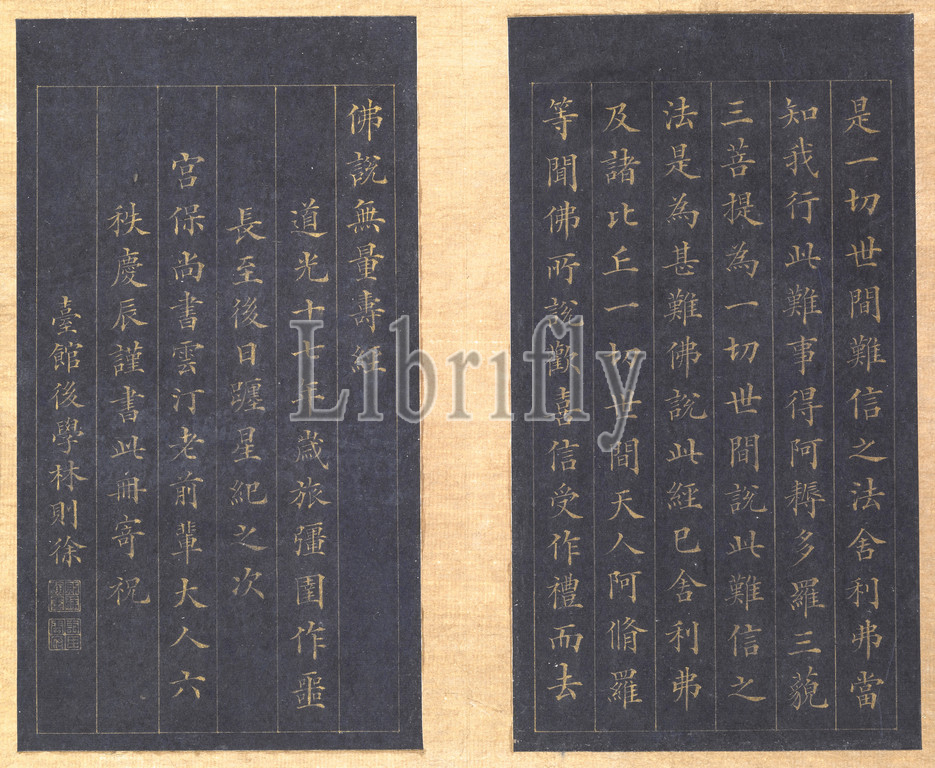 是一切世間難信之法舍利弗當
知我行此難事得阿耨多羅三藐
三菩提為一切世間說此難信之
法是為甚難佛說此經已舍利弗
及諸比丘一切世間天人阿脩羅
等聞佛所說歡喜信受作禮而去
佛說無量壽經
道光十七年歲旅彊圉作噩
長至後日躔星紀之次
宮保尚書雲汀老前輩大人六
秩慶辰謹書此冊寄祝
臺館後學林則徐
Librifly